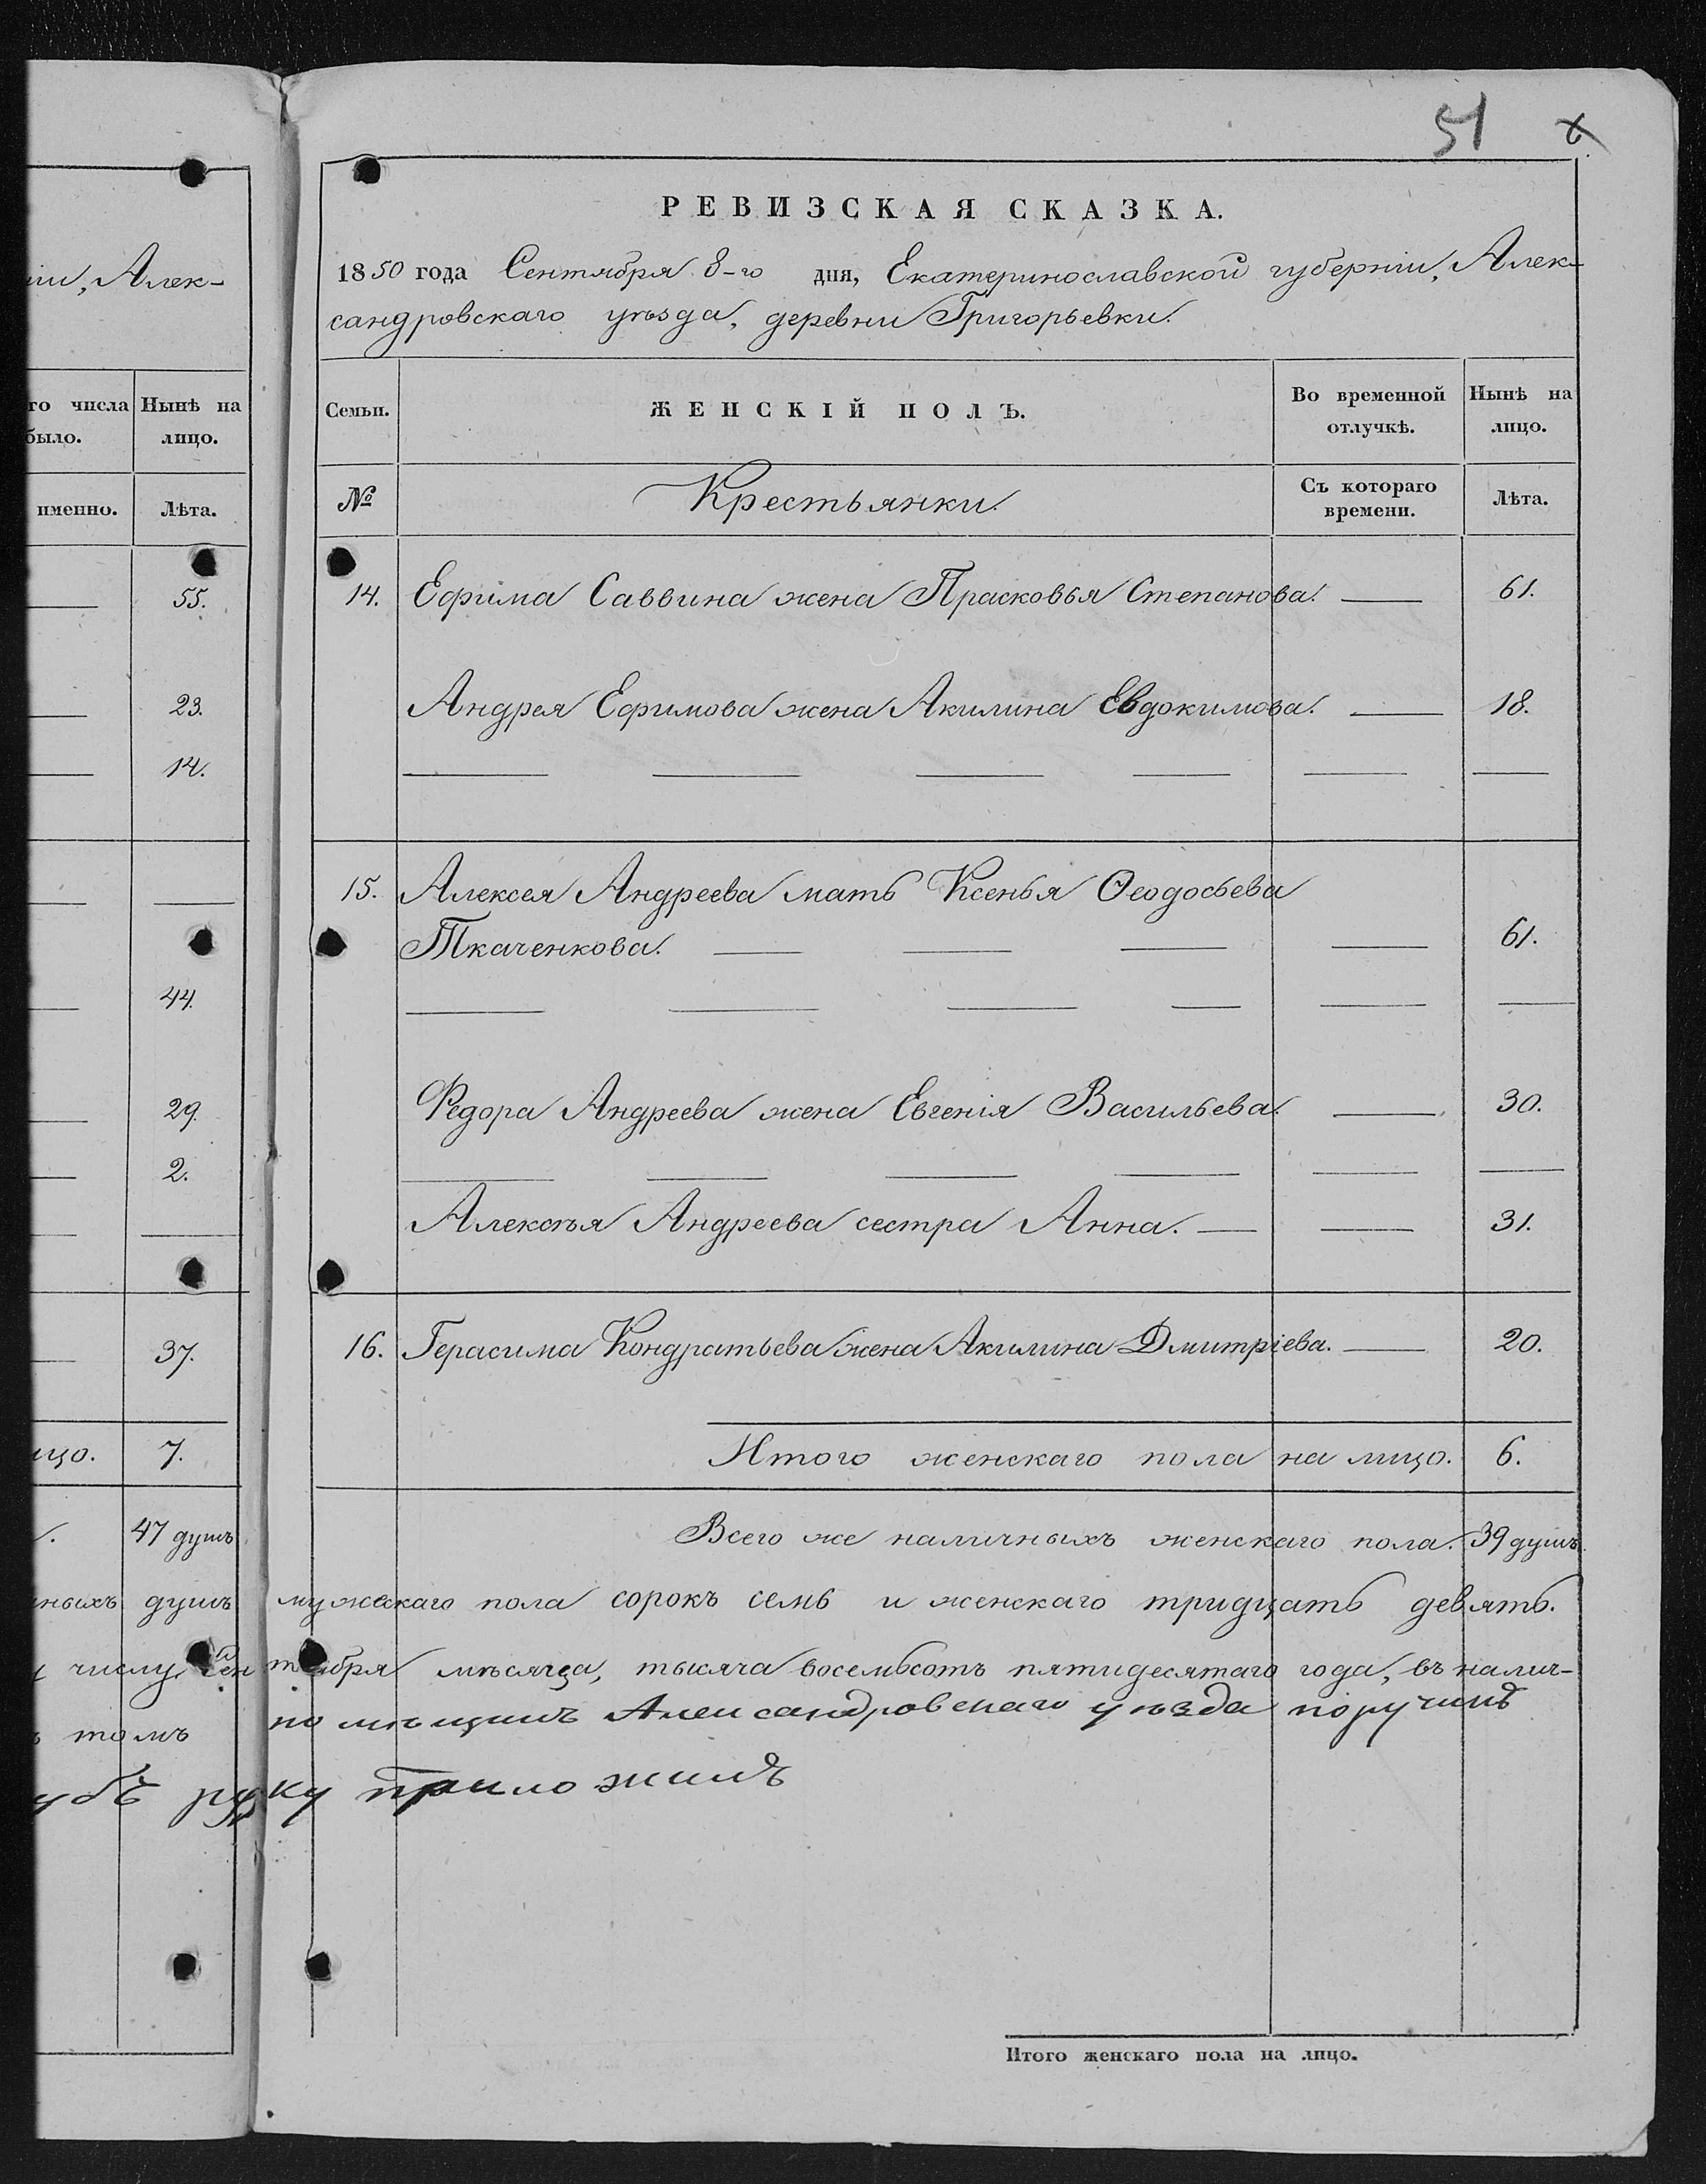 51
ніи, Алек-
го числа было.
Нынѣ на лицо.
именно.
Лѣта.
55.
23.
14.
44.
29.
2.
37.
ицо. 7.
47 душъ
РЕВИЗСКАЯ СКАЗКА.
1850 года Сентября 8-го дня, Екатеринославской губерніи, Алек-
сандровскаго уѣзда, деревни Григорьевки.
Семьи.
ЖЕНСКІЙ ПОЛЪ.
Во временной отлучкѣ.
Нынѣ на лицо.
№
Крестьянки.
Съ котораго времени.
Лѣта.
14. Ефима Саввина жена Прасковья Степанова. — 61.
Андрея Ефимова жена Акилина Евдокимова. — 18.
15. Алексея Андреева мать Ксенья Ѳеодосьева
Ткаченкова. — 61.
Федора Андреева жена Евгенія Васильева. — 30.
Алексѣя Андреева сестра Анна. — 31.
16. Герасима Кондратьева жена Акилина Дмитріева. — 20.
Итого женскаго пола на лицо. 6.
Всего же наличныхъ женскаго пола. 39 душъ.
ныхъ душъ мужескаго пола сорокъ семь и женскаго тридцать девять.
числу Сентября мѣсяца, тысяча восемьсотъ пятидесятаго года, въ налич-
томъ помѣщикъ Александровскаго уѣзда поручикъ
убъ руку приложилъ
Итого женскаго пола на лицо.